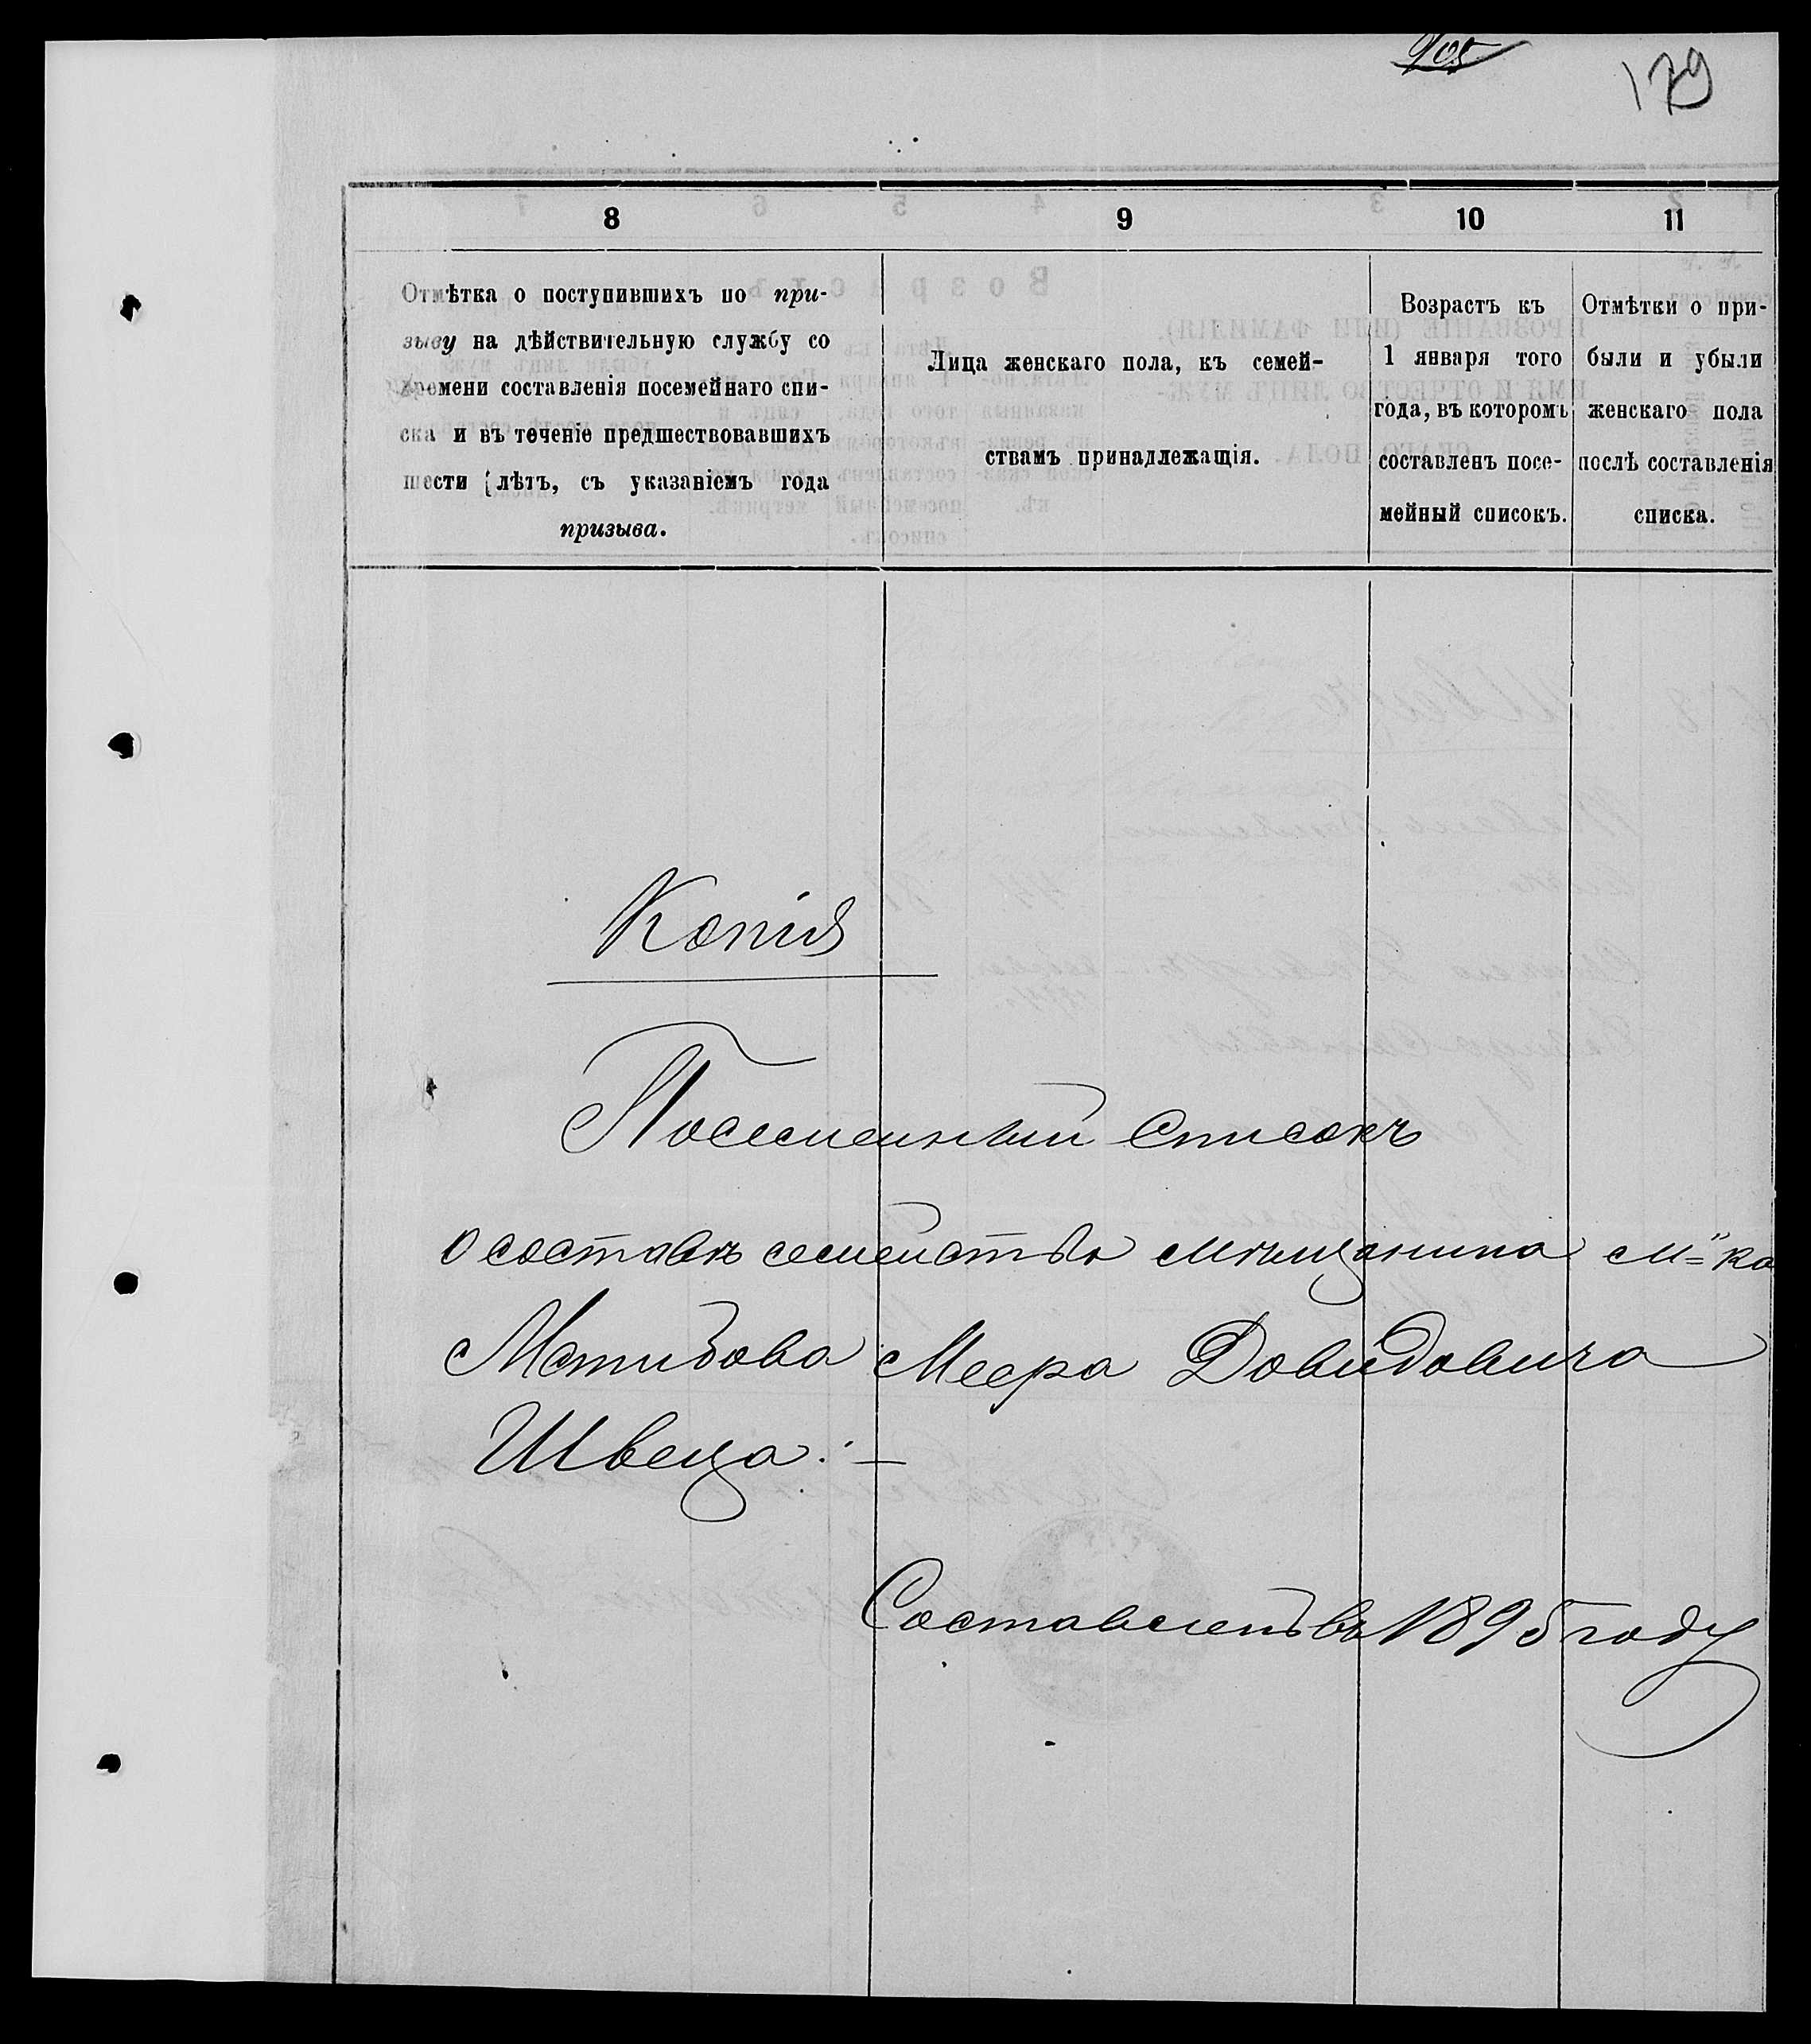 905
179
8 9 10 11
Отмѣтка о поступившихъ по при-
зыву на дѣйствительную службу со
времени составленія посемейнаго спи-
ска и въ теченіе предшествовавшихъ
шести лѣтъ, съ указаніемъ года
призыва.
Лица женскаго пола, къ семей-
ствамъ принадлежащія.
Возрастъ къ
1 января того
года, въ которомъ
составленъ посе-
мейный списокъ.
Отмѣтки о при-
были и убыли
женскаго пола
послѣ составленія
списка.
Копія
Посемейный Списокъ
о составѣ семейства мѣщанина м-ка
Мстибова Меера Довидовича
Швеца:—
Составленъ въ 1895 году